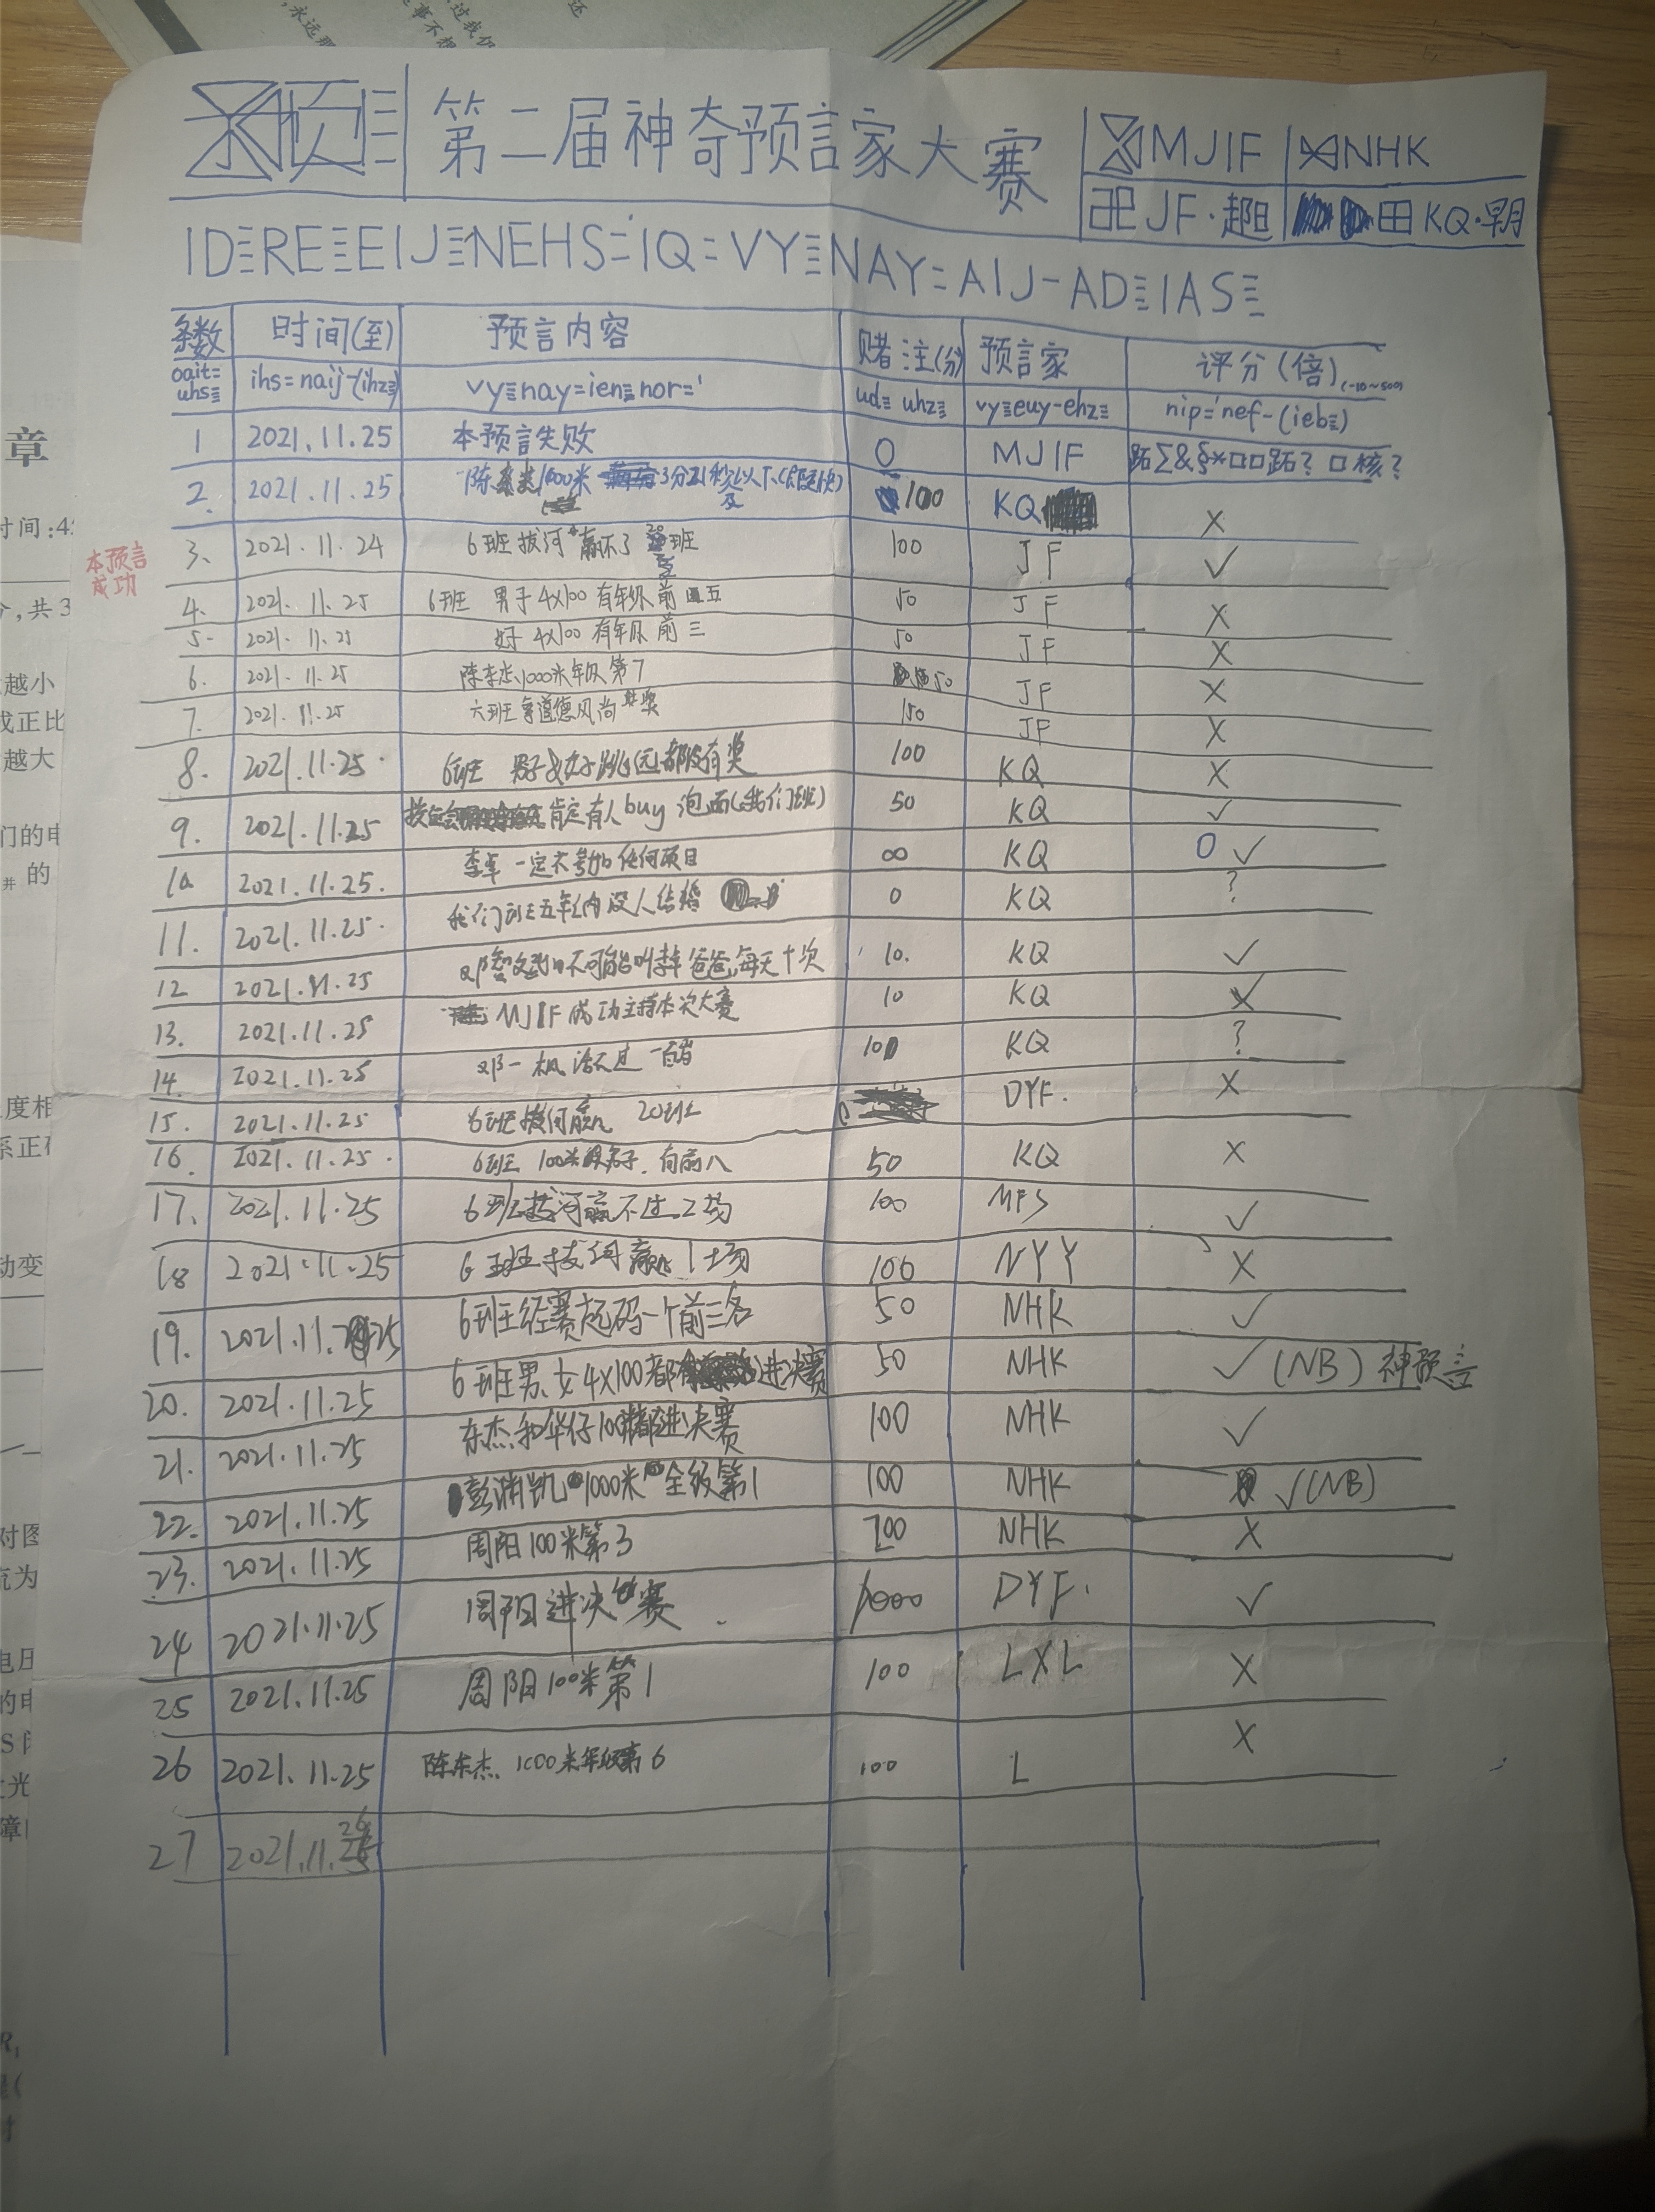 第二届神奇预言家大赛
MJIF NHK
JF· KQ·
ID≡RE≡EIJ≡NEHS=IQ=VY≡NAY=AIJ-AD≡IAS≡
条数 时间(至) 预言内容 赌注(分) 预言家 评分(倍)(-10~500)
oait=uhs≡ ihs=naij-(ihz≡) vy≡nay=ien≡nor=' ud≡uhz≡ vy≡euy-ehz≡ nip='nef-(ieb≡)
1 2021.11.25 本预言失败 0 MJIF
2. 2021.11.25 陈 1000米 3分21秒及以下 100 KQ X
本预言成功
3. 2021.11.24 6班拔河赢不了 班 100 JF ✓
4. 2021.11.25 6班 男子4x100有年级前五 50 JF X
5. 2021.11.25 女子4x100有年级前三 50 JF X
6. 2021.11.25 1000米年级第7 50 JF X
7. 2021.11.25 六班拿道德风尚奖 150 JF X
8. 2021.11.25 6班 男子女子跳远都没有奖 100 KQ X
9. 2021.11.25 肯定有人buy泡面(我们班) 50 KQ ✓
10 2021.11.25. 一定不参加任何项目 ∞ KQ 0 ✓
11. 2021.11.25. 我们班五年内没人结婚 0 KQ ?
12 2021.11.25 不可能叫 爸爸,每天十次 10. KQ ✓
13. 2021.11.25 MJIF成功主持本次大赛 10 KQ ✓
14. 2021.11.25 活不过一百岁 100 KQ ?
15. 2021.11.25 6班拔河赢 20班 DYF. X
16. 2021.11.25. 6班 100米 男子.有前八 50 KQ X
17. 2021.11.25 6班拔河赢不过2场 100 MFS ✓
18 2021.11.25 6班拔河赢1场 100 NYY X
19. 2021.11.25 6班径赛起码一个前三名 50 NHK ✓
20. 2021.11.25 6班男、女4X100都进决赛 50 NHK ✓(NB)神预言
21. 2021.11.25 东杰和华仔100 都进决赛 100 NHK ✓
22. 2021.11.25 彭湃凯1000米全级第1 100 NHK ✓(NB)
23. 2021.11.25 周阳100米第3 200 NHK X
24 2021.11.25 周阳进决赛 1000 DYF. ✓
25 2021.11.25 周阳100米第1 100 LXL X
26 2021.11.25 陈东杰 1000米年级第6 100 L X
27 2021.11.